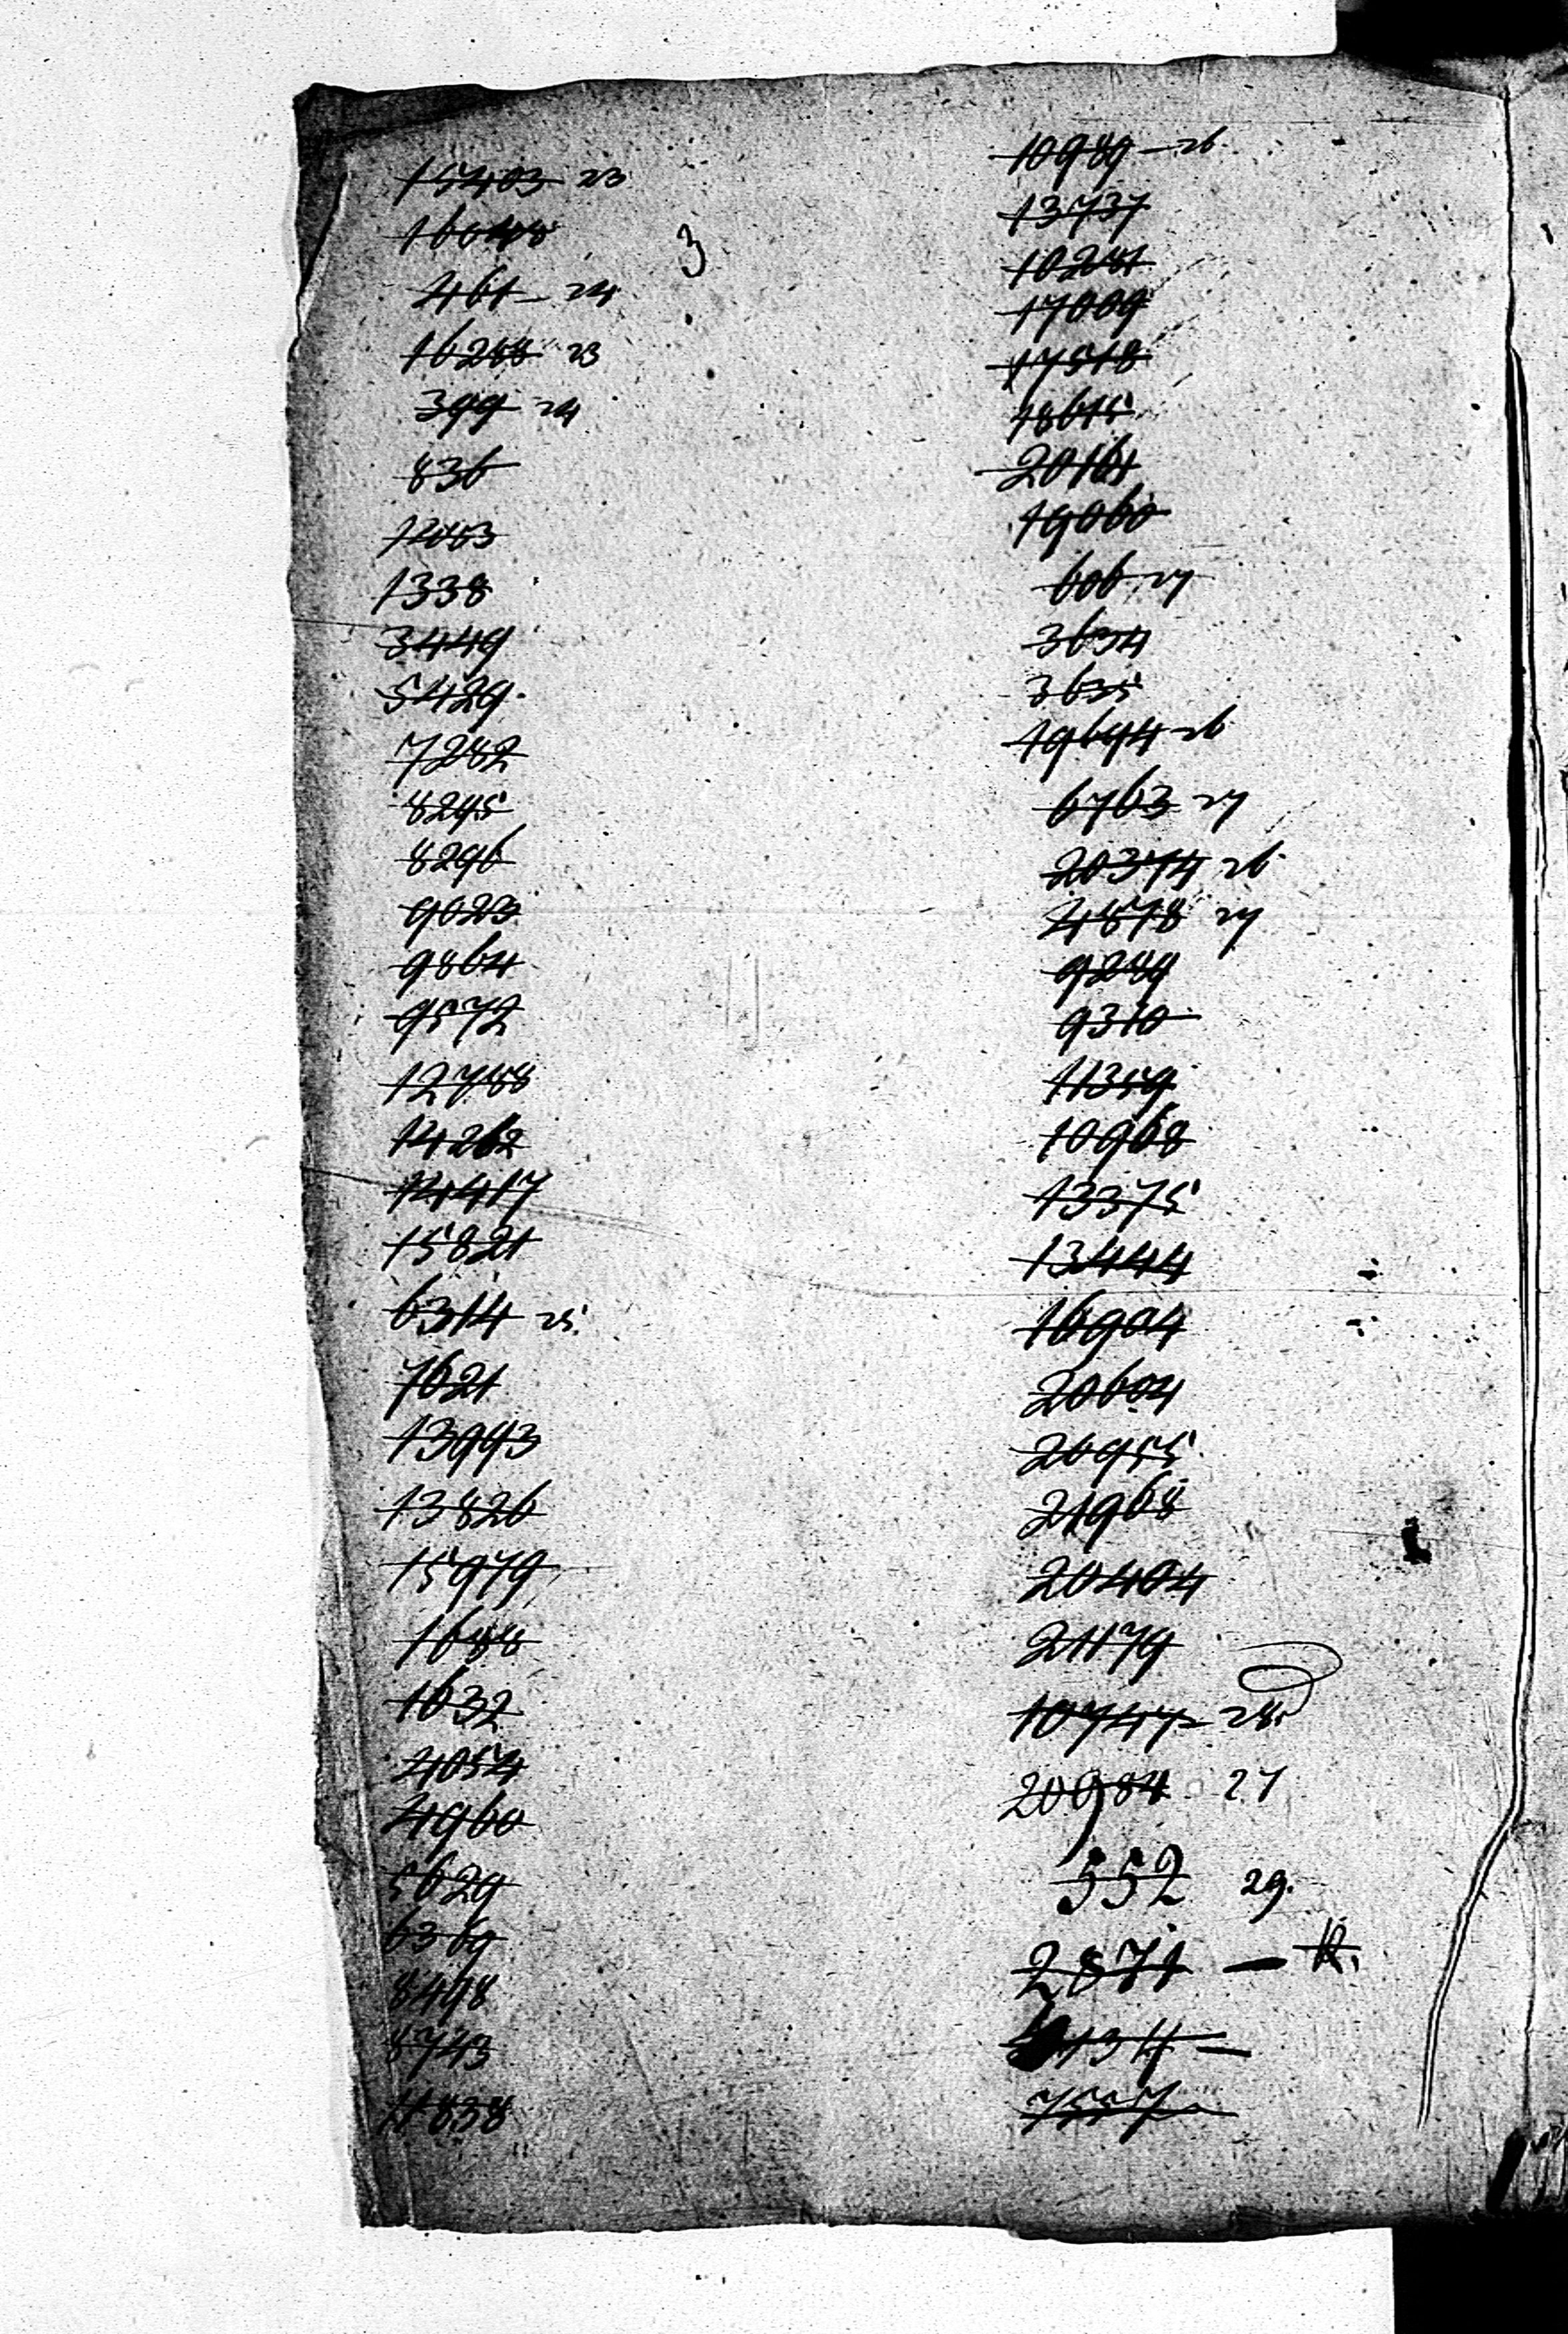 15403 23
16048
3
461 - 24
16258 23
399 24
836
1053
1338
3449
5429.
7282
8295
8296
9023
9864
9572
12788
14262
14417
15821
6314 25.
7621
13993
13826
15979
1688
1632
4054
4960
5629
6369
8498
8743
11838
10989 - 26.
13737
10281
17009
17518
18615
20161
19060
606 27
3634
3635
19694 - 26
6763 27
20374 26
4878 27
9289
9310
11359
10968
13375
13444
16904
20604
20955
21968
20404
21179
10747 - 28.
20984 27
552 29.
2871 -
7557